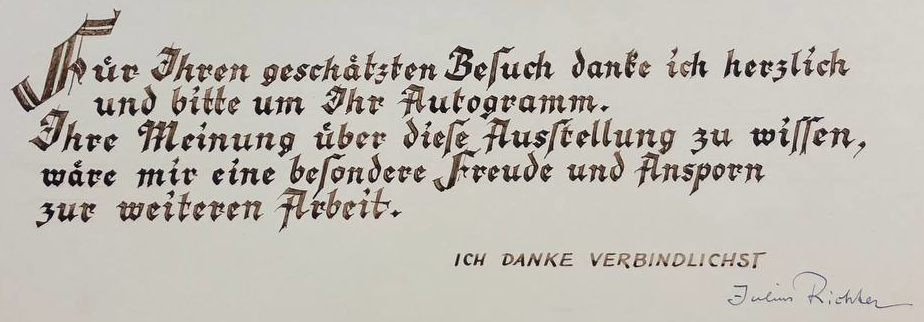 Für Ihren geschätzten Besuch danke ich herzlich
und bitte um Ihr Autogramm.
Ihre Meinung über diese Ausstellung zu wissen,
wäre mir eine besondere Freude und Ansporn
zur weiteren Arbeit.
ICH DANKE VERBINDLICHST
Julius Richter